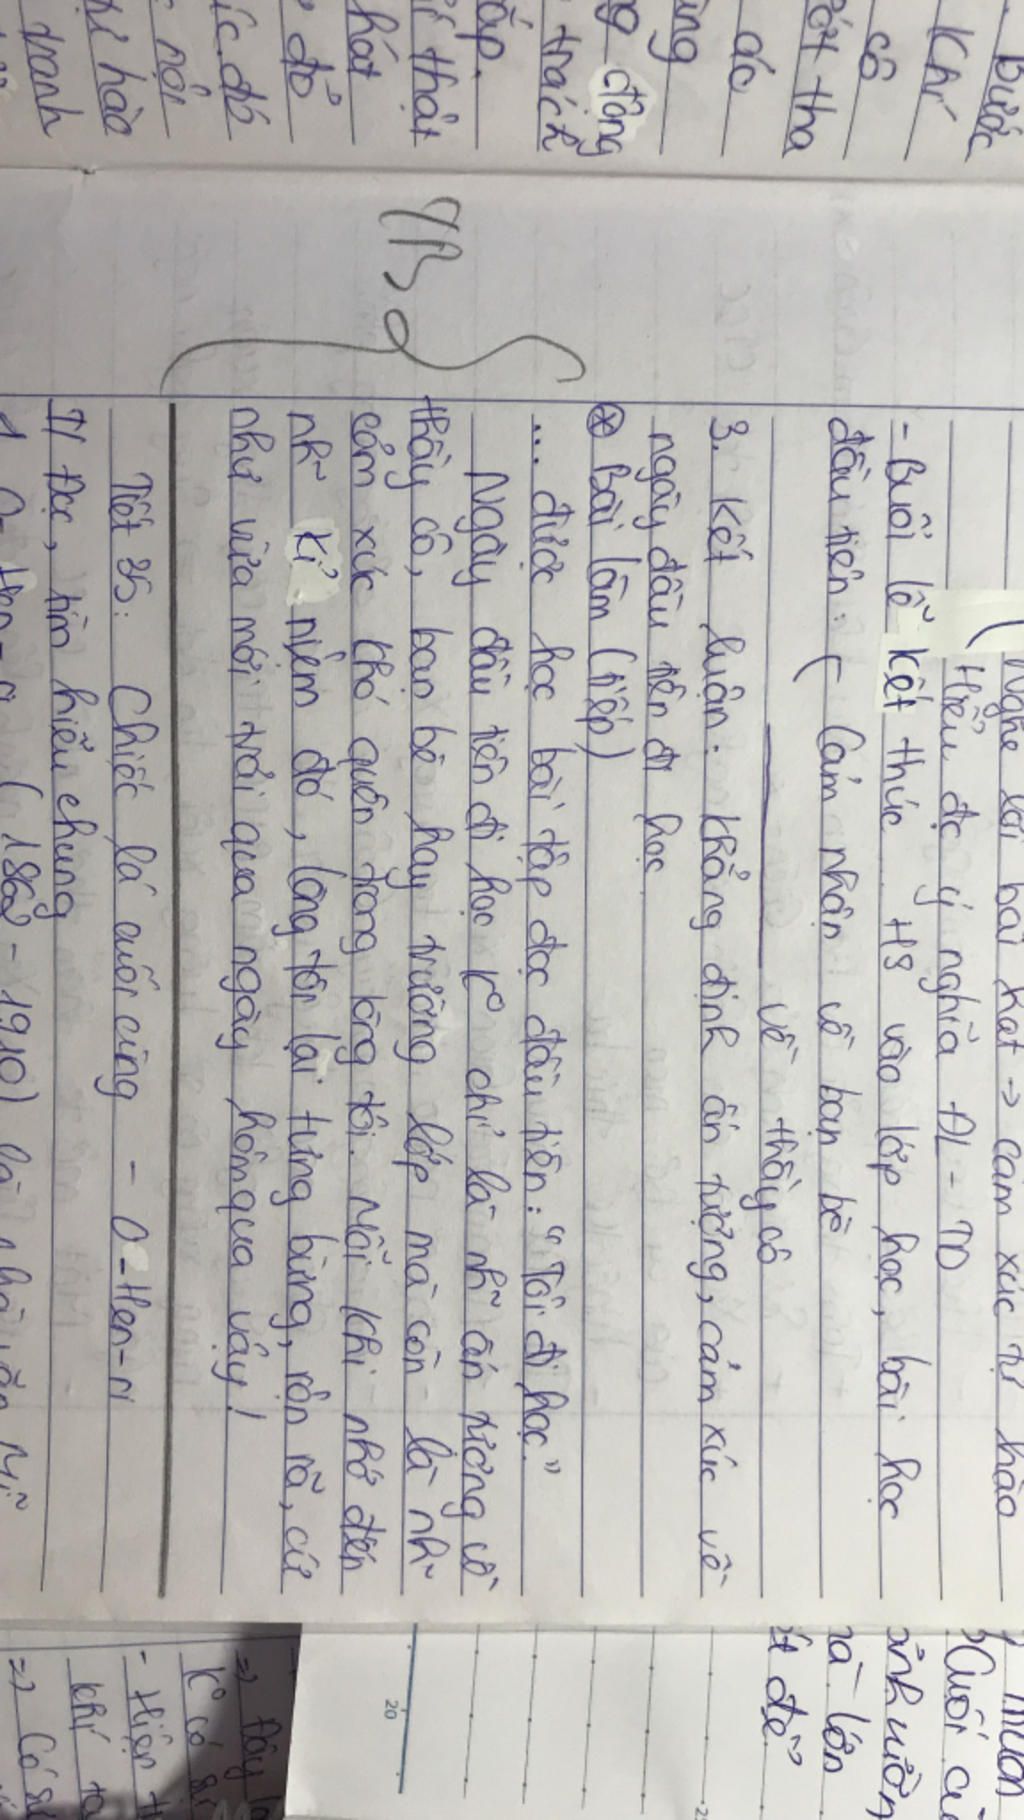 Nghe lời bài hát → cảm xúc tự hào
( Hiểu đc ý nghĩa ĐL - TD
- Buổi lễ kết thúc. HS vào lớp học, bài học
đầu tiên: ( Cảm nhận về bạn bè
về thầy cô
3. Kết luận: Khẳng định ấn tượng, cảm xúc về
ngày đầu tiên đi học
⊛ Bài làm (tiếp)
... được học bài tập đọc đầu tiên: "Tôi đi học"
Ngày đầu tiên đi học k° chỉ là nh~ ấn tượng về
thầy cô, bạn bè hay trường lớp mà còn là nh~
cảm xúc khó quên trong lòng tôi. Mỗi khi nhớ đến
nh~ kỉ niệm đó, lòng tôi lại tưng bừng, rộn rã, cứ
như vừa mới trải qua ngày hôm qua vậy!
Tiết 35: Chiếc lá cuối cùng - O-Hen-ri
I/ Đọc, tìm hiểu chung
(1862 - 1910) là nhà văn Mĩ
bước
khí
cô
thướt tha
ác
đồng
trách
thật
hát
đỏ
đó
nội
hào
tranh
muôn
Cuối
lớn
đề"
=> Đây là
k° có
- Hiện
khí
=> Có
20